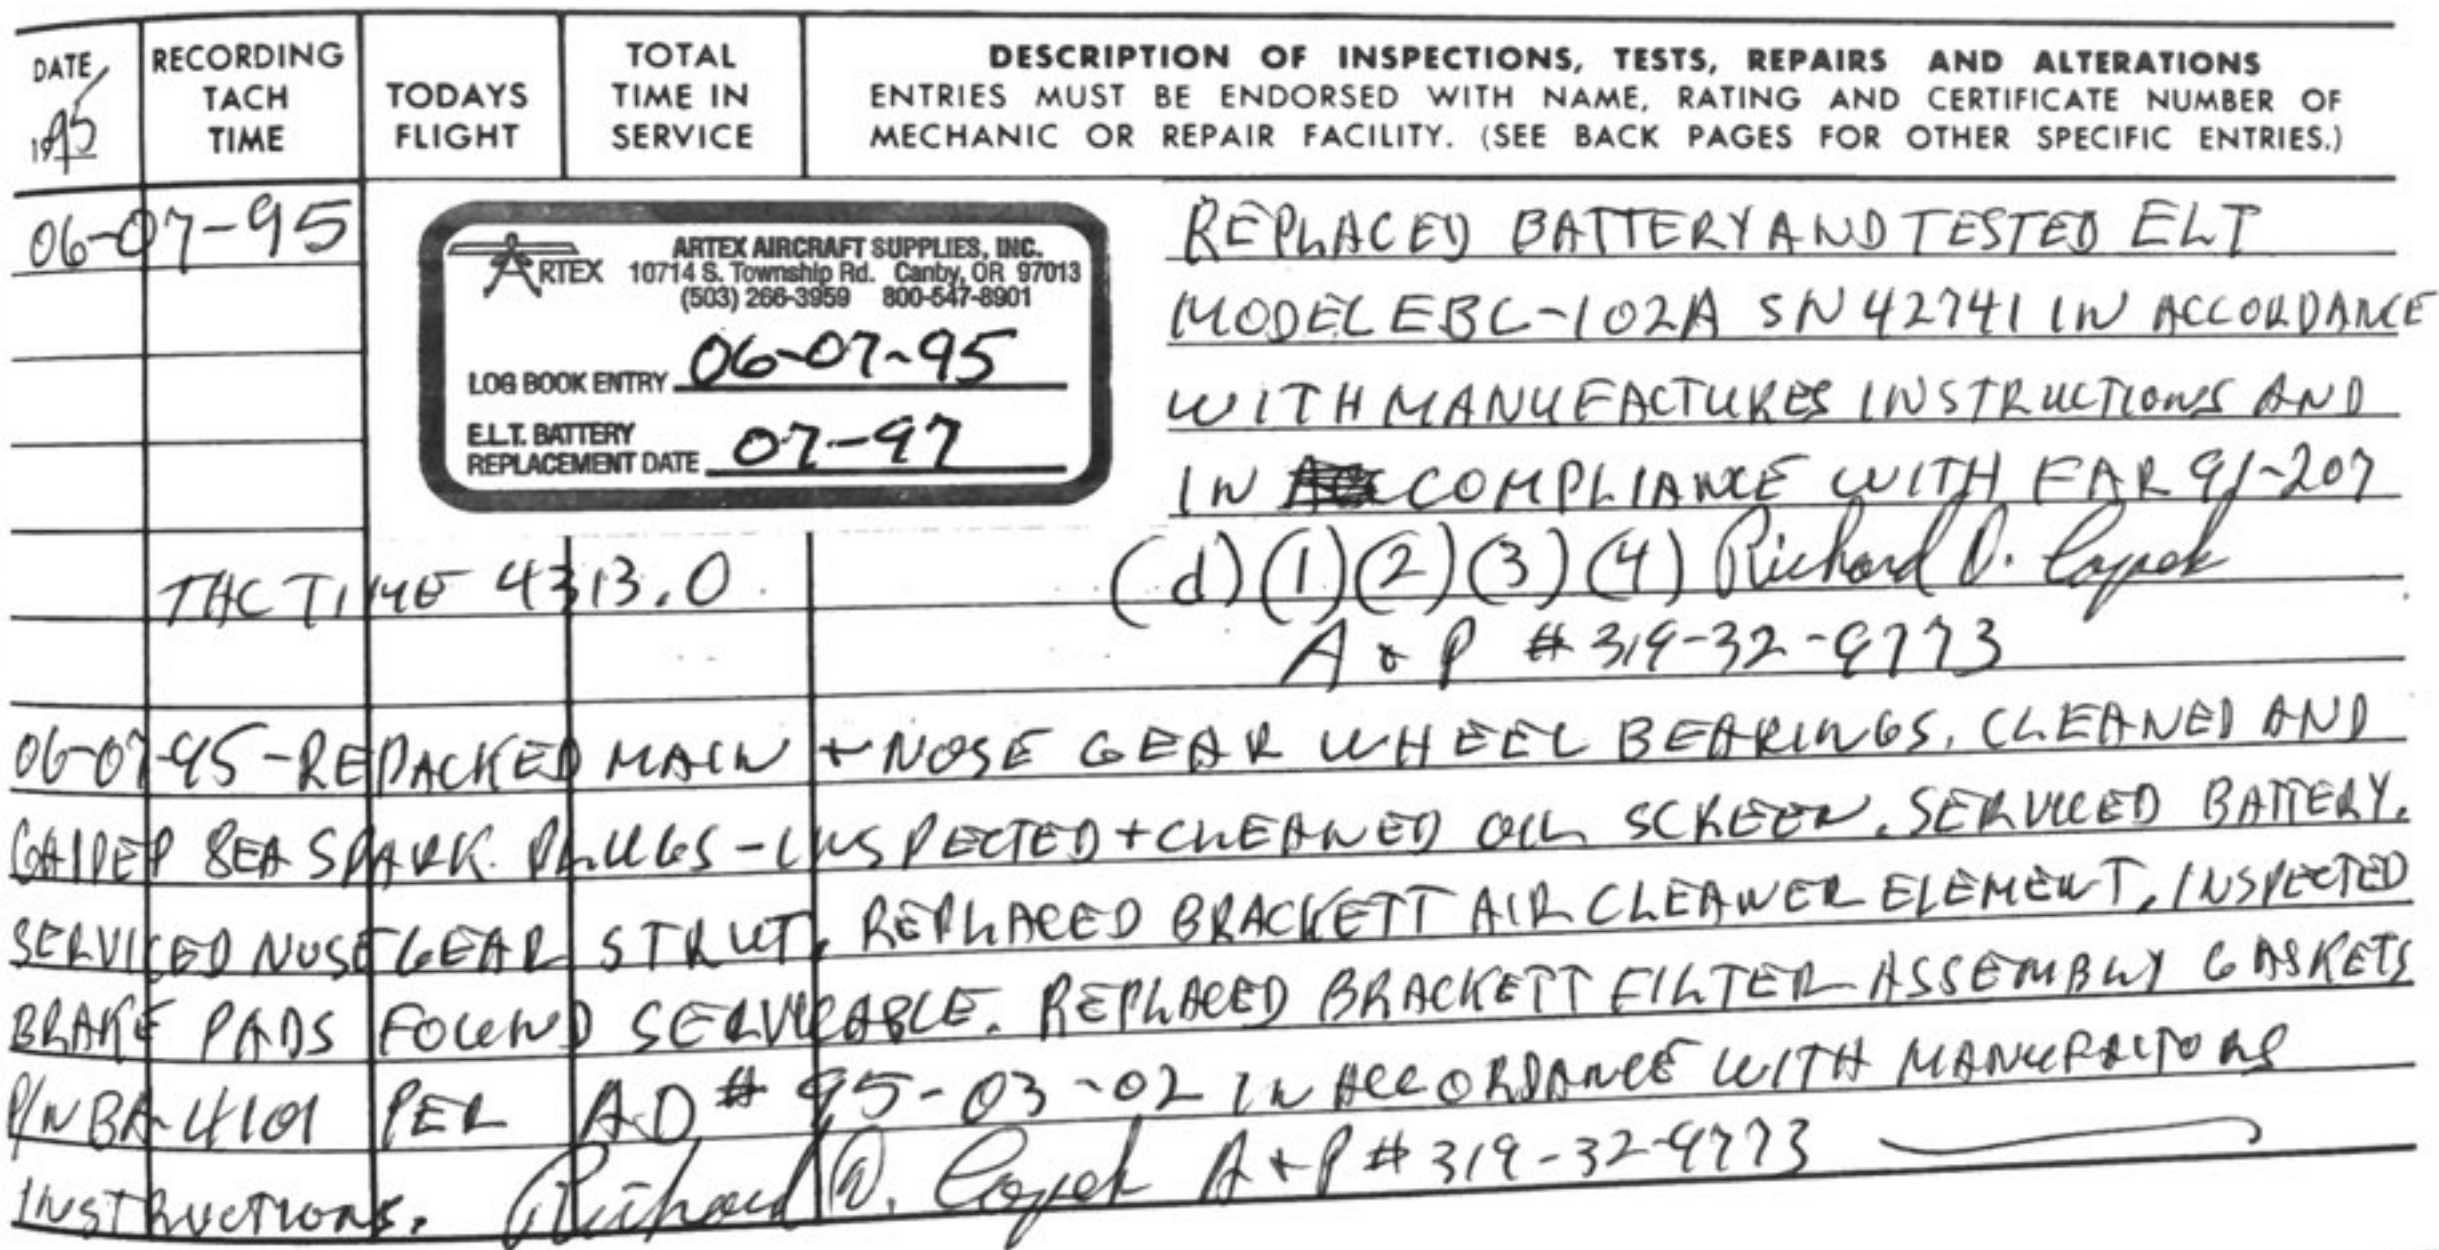 DATE
1995
RECORDING
TACH
TIME
TODAYS
FLIGHT
TOTAL
TIME IN
SERVICE
DESCRIPTION OF INSPECTIONS, TESTS, REPAIRS AND ALTERATIONS
ENTRIES MUST BE ENDORSED WITH NAME, RATING AND CERTIFICATE NUMBER OF
MECHANIC OR REPAIR FACILITY. (SEE BACK PAGES FOR OTHER SPECIFIC ENTRIES.)
06-07-95
ARTEX
ARTEX AIRCRAFT SUPPLIES, INC.
10714 S. Township Rd. Canby, OR 97013
(503) 266-3959 800-547-8901
LOG BOOK ENTRY 06-07-95
E.L.T. BATTERY
REPLACEMENT DATE 07-97
REPLACED BATTERY AND TESTED ELT
MODEL EBC-102A SN 42741 IN ACCORDANCE
WITH MANUFACTURES INSTRUCTIONS AND
IN COMPLIANCE WITH FAR 91-207
TAC TIME 4313.0
(d) (1) (2) (3) (4) Richard D.
A & P # 319-32-9773
06-07-95 - REPACKED MAIN + NOSE GEAR WHEEL BEARINGS. CLEANED AND
GAPED 8EA SPARK PLUGS - INSPECTED + CLEANED OIL SCREEN. SERVICED BATTERY.
SERVICED NOSE GEAR STRUT. REPLACED BRACKETT AIR CLEANER ELEMENT, INSPECTED
BRAKE PADS FOUND SERVICABLE. REPLACED BRACKETT FILTER ASSEMBLY GASKETS
P/N BA-4101 PER AD # 95-03-02 IN ACCORDANCE WITH MANUFACTORS
INSTRUCTIONS. Richard D. A + P # 319-32-9773